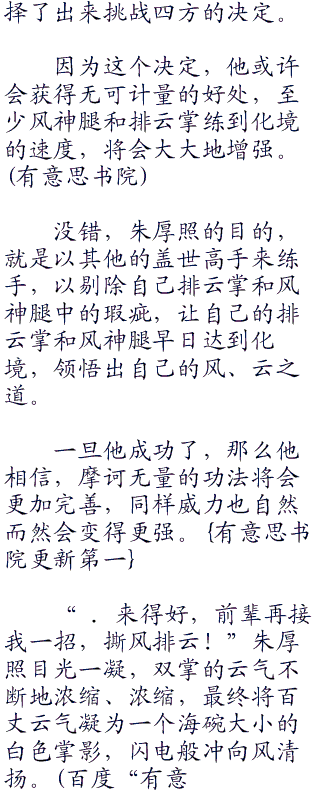 择了出来挑战四方的决定。
因为这个决定，他或许
会获得无可计量的好处，至
少风神腿和排云掌练到化境
的速度，将会大大地增强。
(有意思书院)
没错，朱厚照的目的，
就是以其他的盖世高手来练
手，以剔除自己排云掌和风
神腿中的瑕疵，让自己的排
云掌和风神腿早日达到化
境，领悟出自己的风、云之
道。
一旦他成功了，那么他
相信，摩诃无量的功法将会
更加完善，同样威力也自然
而然会变得更强。{有意思书
院更新第一}
“ ．来得好，前辈再接
我一招，撕风排云！”朱厚
照目光一凝，双掌的云气不
断地浓缩、浓缩，最终将百
丈云气凝为一个海碗大小的
白色掌影，闪电般冲向风清
扬。(百度“有意